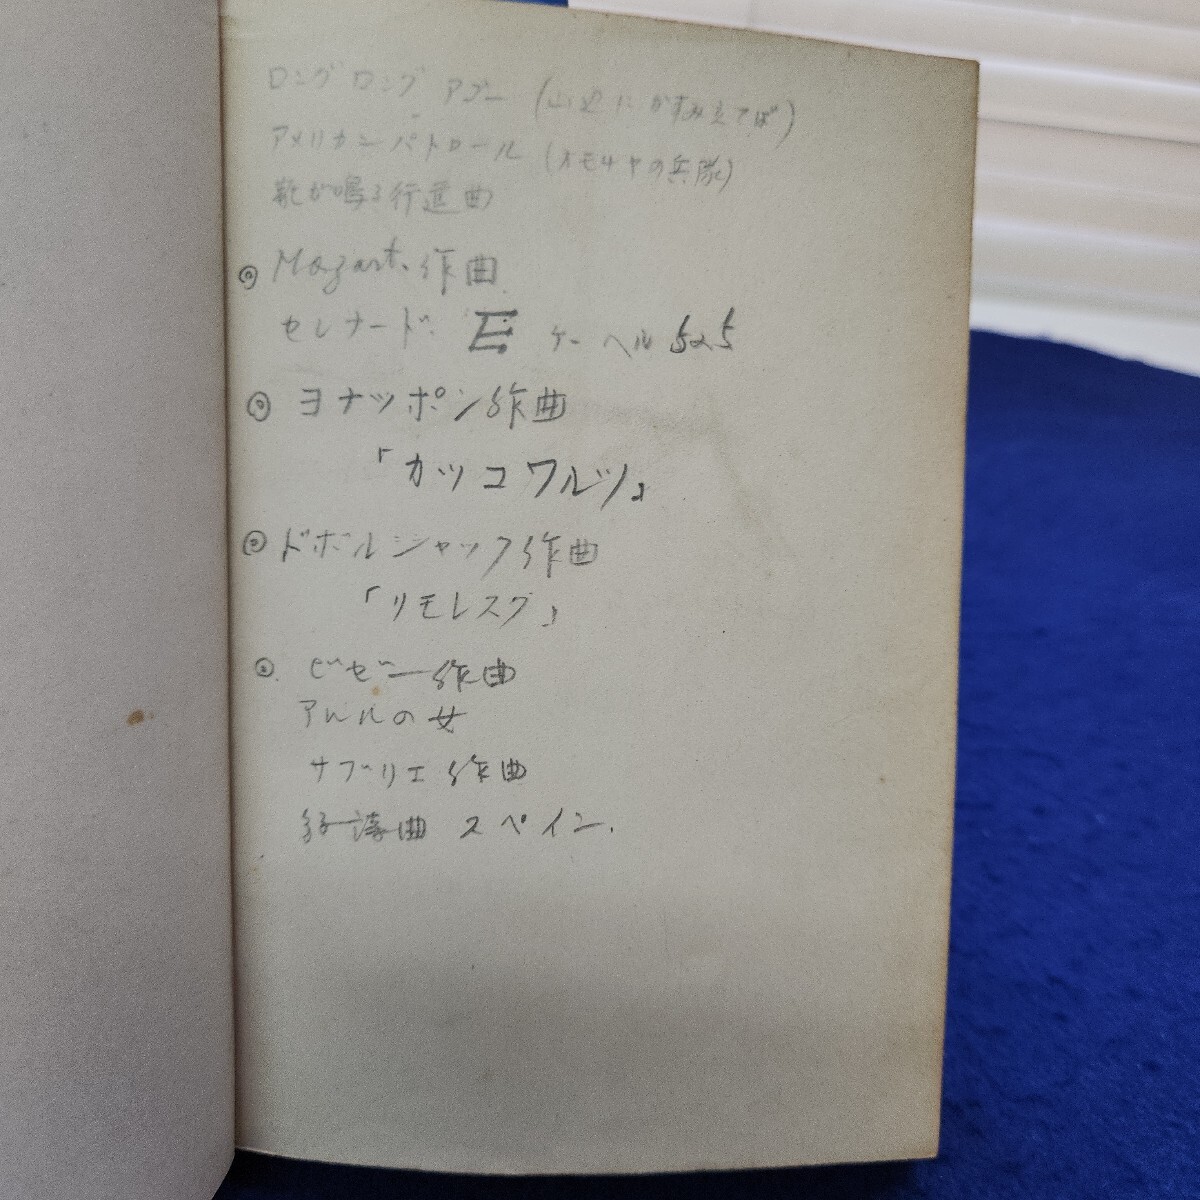 ロングロング アゴー (山辺にかすみ立てば)
アメリカンパトロール (オモチヤの兵隊)
靴が鳴る行進曲
◎ Mozart. 作曲.
セレナード. E ケーヘル 525
◎ ヨナッポン作曲
「カッコワルツ」
◎ ドボルシャック作曲
「リモレスク」
◎. ビゼー作曲
アルルの女
サブリエ作曲
狂詩曲 スペイン.